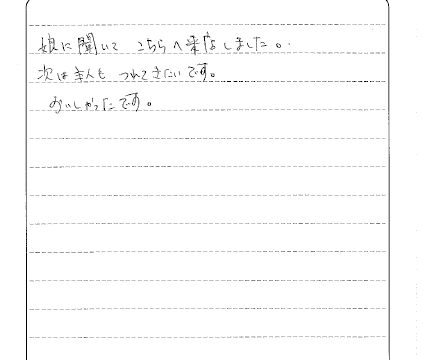 娘に聞いて こちらへ来店しました。
次は主人も つれてきたいです。
おいしかったです。